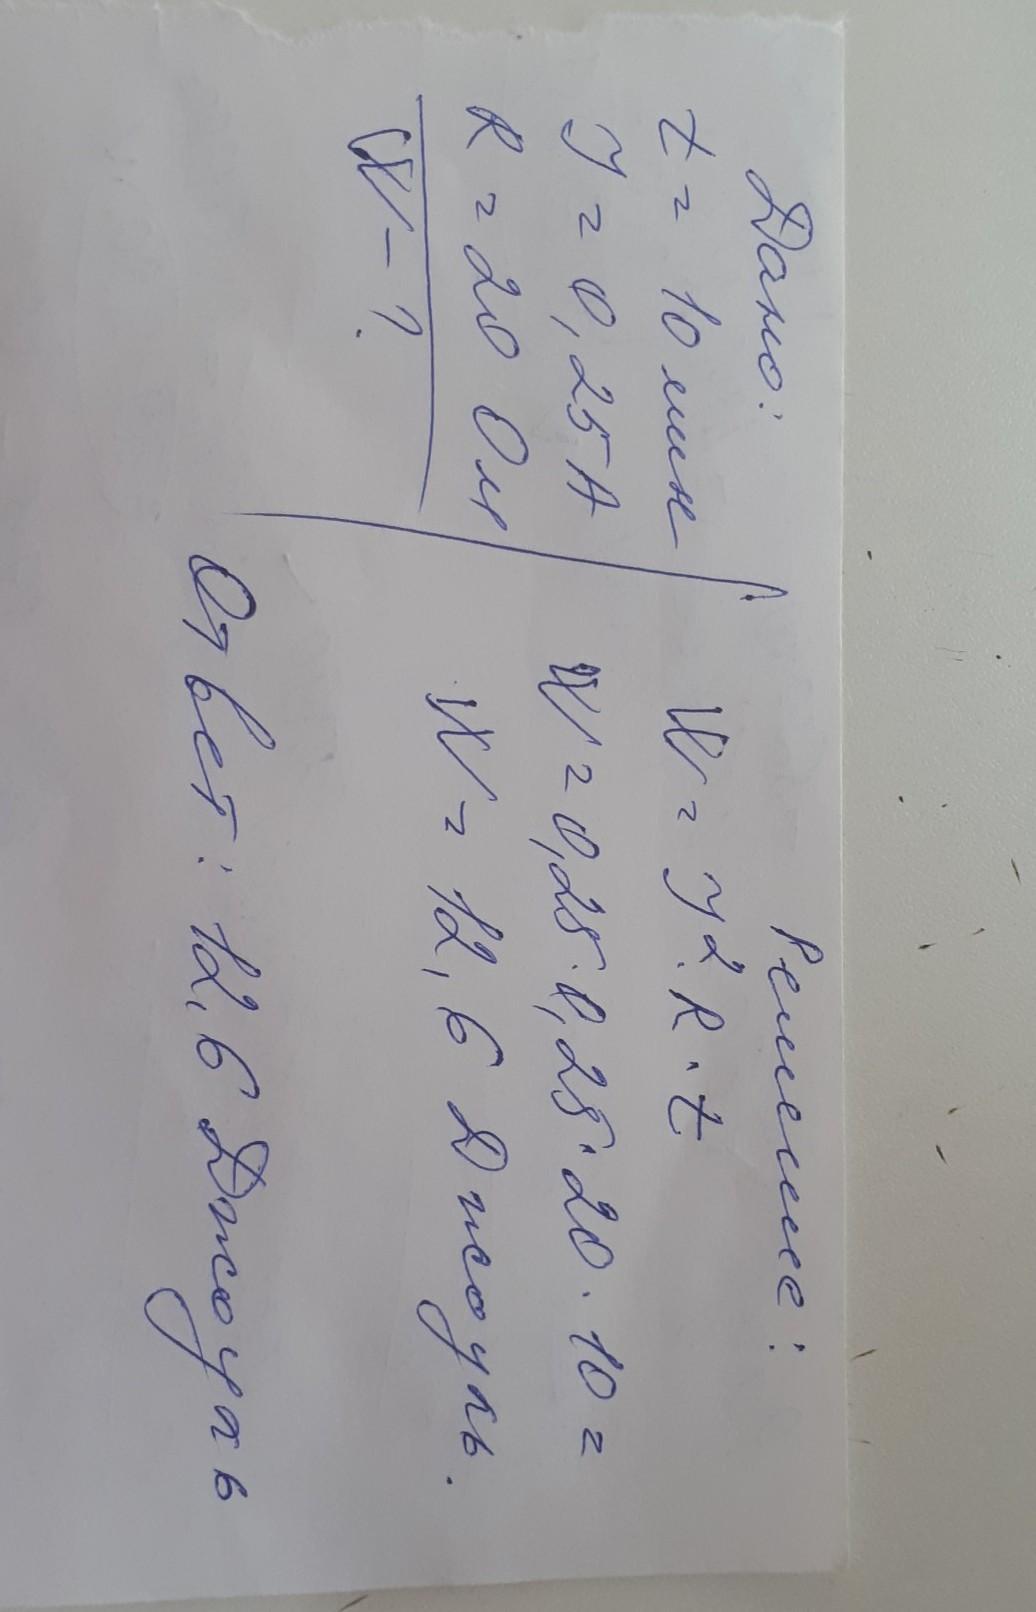 Дано:
t = 10 мин
J = 0,25А
R = 20 Ом
W - ?
Решение:
W = J². R . t
W = 0,25 . 0,25 . 20 . 10 =
W = 12,6 Джоуль.
Ответ: 12,6 Джоуль